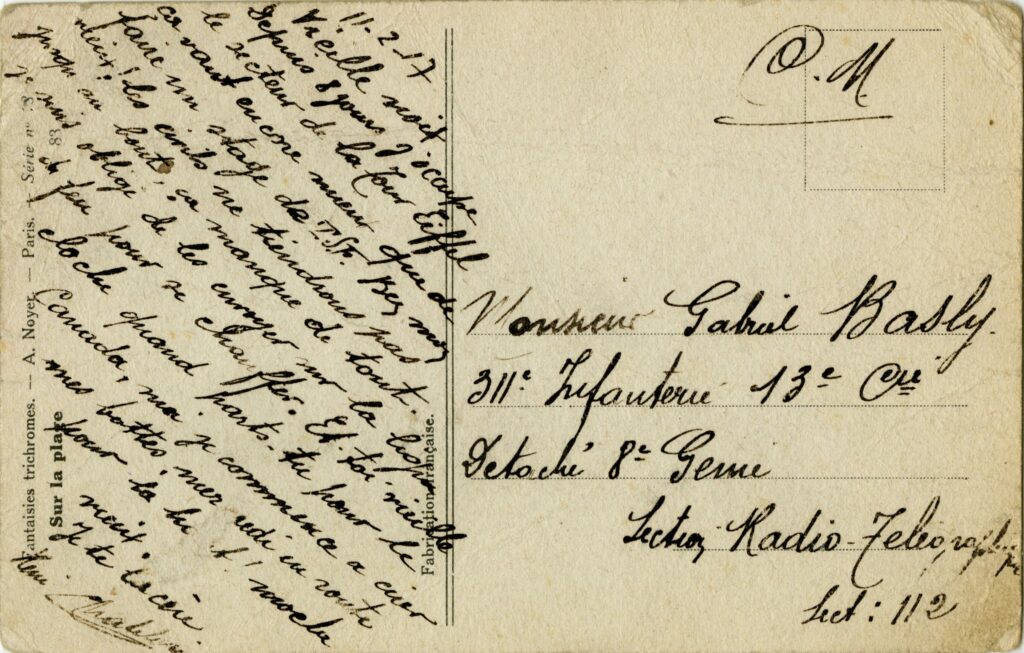 11-2-17
Vieille noix
Depuis 8 jours j'occupe
le secteur de la Tour Eiffel
ca vaut encore mieux que de
faire un stage de T.S.F. Bez
mieux! les civils ne tiendrons pas
jusqu'au bout, ça manque de tout.
je suis obligé de les envoyer sur la
du feu pour se chauffer. Et toi, vieille
cloche quand pars-tu pour le
Canada, moi je commence a cirer
mes bottes, mercredi en route
pour la
noix.
Je te
C.M.
Monsieur Gabriel Basly.
311e Infanterie 13e Cie
Detaché 8e Genie
Section Radio-Telegraphique
Sect: 112
Fantaisies trichromes. — A. Noyer — Paris. — Série no 83
Sur la plage
Fabrication française.